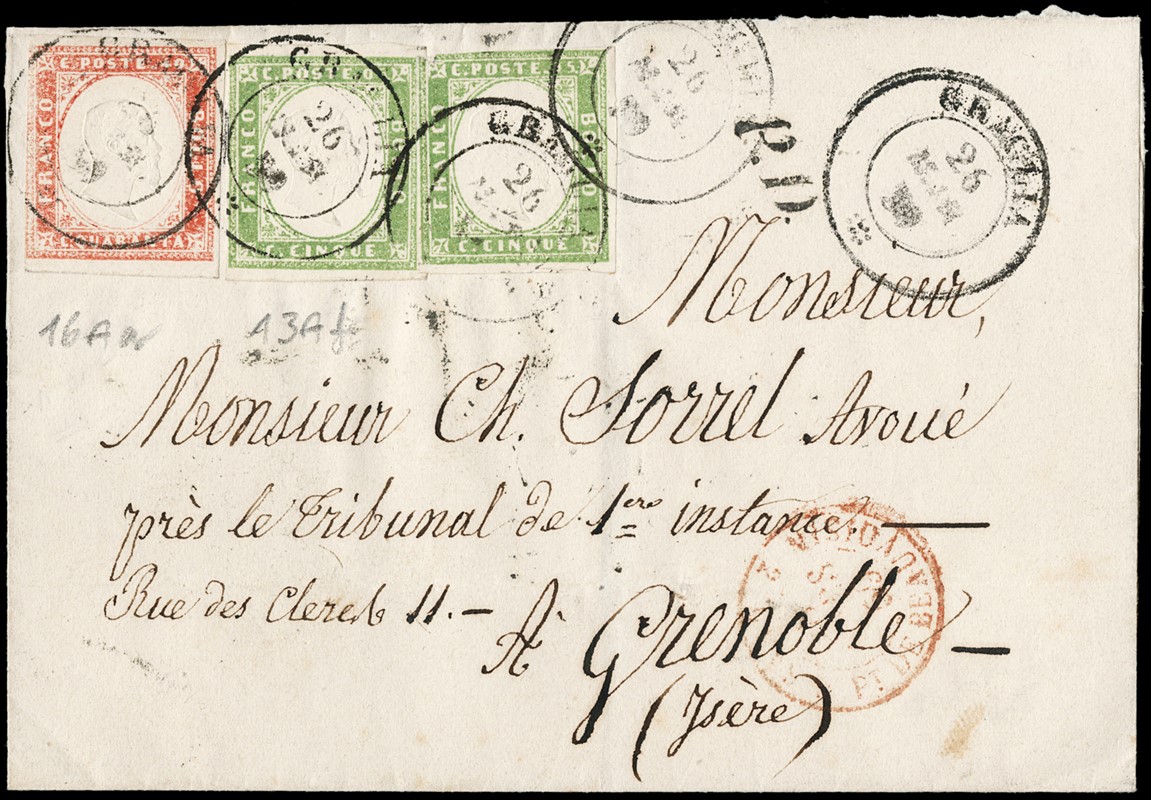 C. POSTE 40
FRANCO
C. QUARANTA
C. POSTE
FRANCO
C. CINQUE
C. POSTE 5
FRANCO
C. CINQUE
26
26
26
P.D
26
16A
13A
Monsieur,
Monsieur Ch. Sorrel Avoué
près le Tribunal de 1ère instance. —
Rue des Clercs 11. —
A Grenoble —
(Isère)
PT DE BEAUVOISIN